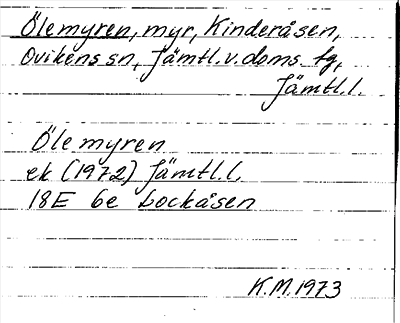 Ölemyren, myr, Kinderåsen,
Ovikens sn, Jämtl.v.doms. tg,
Jämtl.l.
Ölemyren
ek (1972) Jämtl.l.
18E 6e Lockåsen
K.M.1973